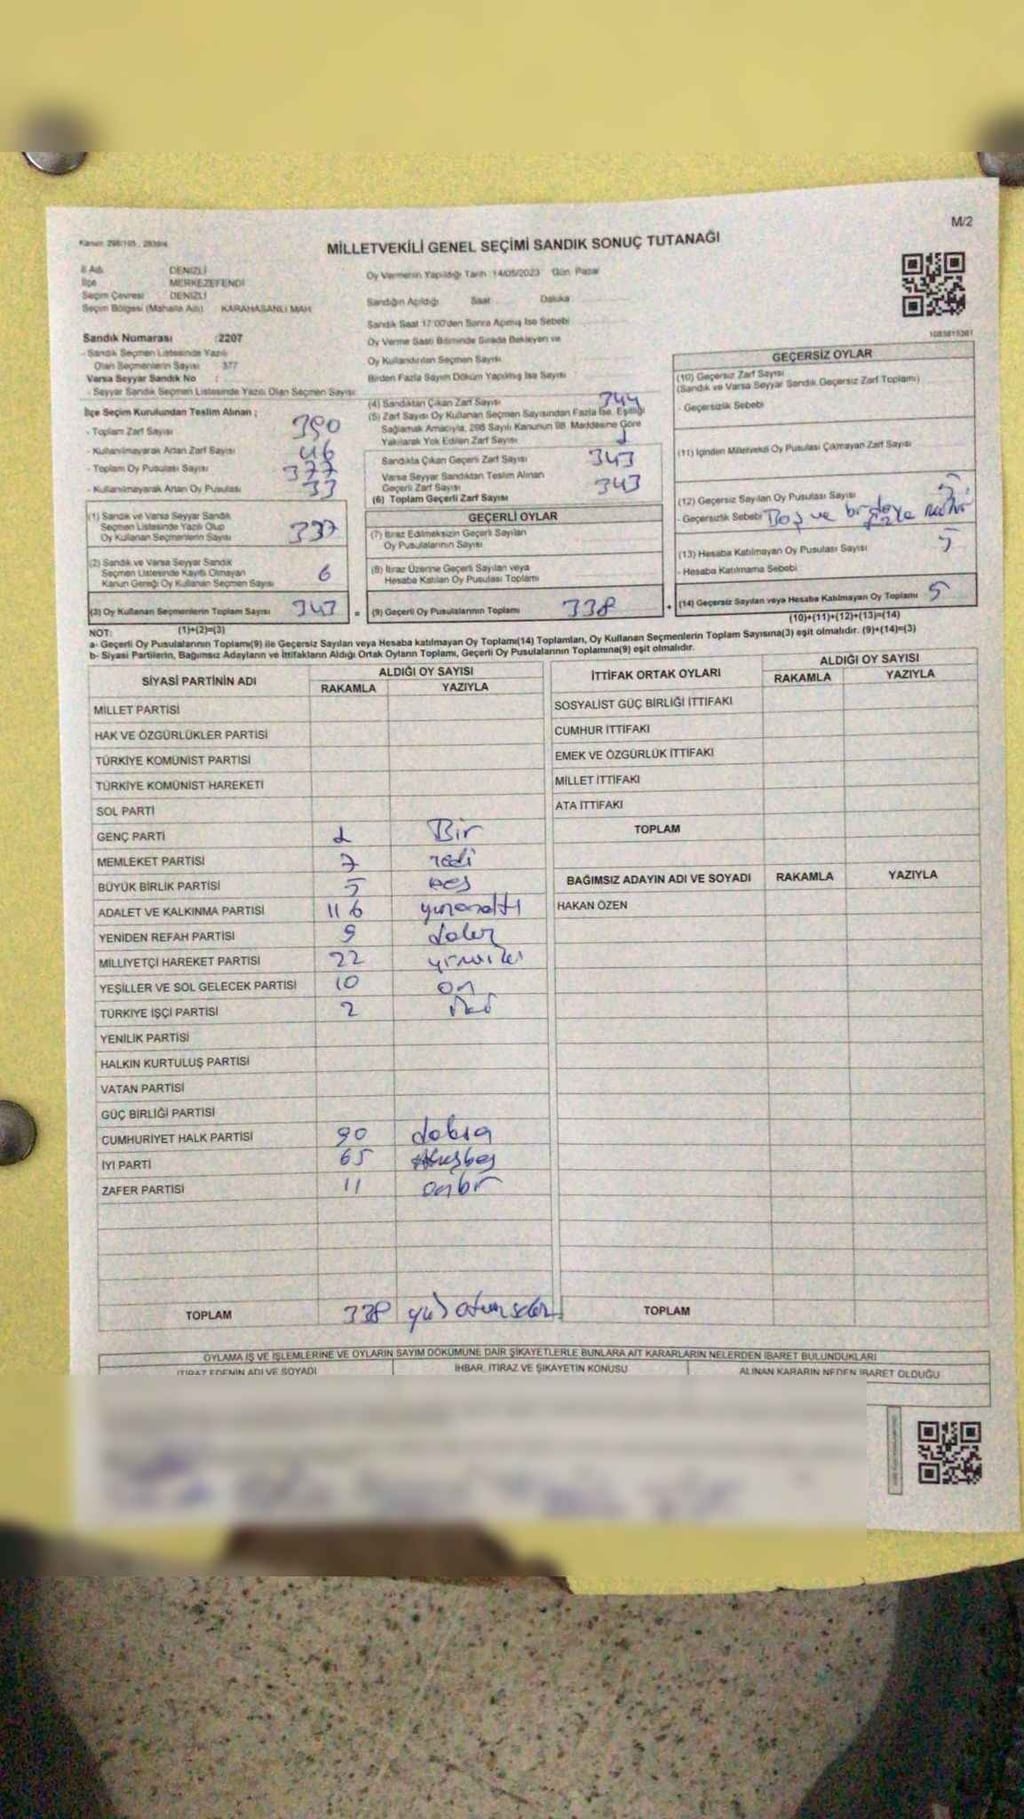 M/2
MİLLETVEKİLİ GENEL SEÇİMİ SANDIK SONUÇ TUTANAĞI
İl Adı DENİZLİ
İlçe MERKEZEFENDİ
Seçim Çevresi DENİZLİ
Seçim Bölgesi (Mahalle Adı) KARAHASANLI MAH
Oy Vermenin Yapıldığı Tarih 14/05/2023 Gün Pazar
Sandığın Açıldığı Saat Dakika
Sandık Saat 17:00'den Sonra Açılmış İse Sebebi
Oy Verme Saati Bitiminde Sırada Bekleyen ve
Oy Kullandırılan Seçmen Sayısı
Birden Fazla Sayım Döküm Yapılmış İse Sayısı
Sandık Numarası :2207
- Sandık Seçmen Listesinde Yazılı
Olan Seçmenlerin Sayısı 377
Varsa Seyyar Sandık No :
- Seyyar Sandık Seçmen Listesinde Yazılı Olan Seçmen Sayısı
İlçe Seçim Kurulundan Teslim Alınan ;
- Toplam Zarf Sayısı 390
- Kullanılmayarak Artan Zarf Sayısı 46
- Toplam Oy Pusulası Sayısı 377
- Kullanılmayarak Artan Oy Pusulası 33
(1) Sandık ve Varsa Seyyar Sandık
Seçmen Listesinde Yazılı Olup
Oy Kullanan Seçmenlerin Sayısı 337
(2) Sandık ve Varsa Seyyar Sandık
Seçmen Listesinde Kayıtlı Olmayan
Kanun Gereği Oy Kullanan Seçmen Sayısı 6
(3) Oy Kullanan Seçmenlerin Toplam Sayısı 343
(1)+(2)=(3)
(4) Sandıktan Çıkan Zarf Sayısı 344
(5) Zarf Sayısı Oy Kullanan Seçmen Sayısından Fazla İse, Eşitliği
Sağlamak Amacıyla, 298 Sayılı Kanunun 98. Maddesine Göre
Yakılarak Yok Edilen Zarf Sayısı 1
Sandıkta Çıkan Geçerli Zarf Sayısı 343
Varsa Seyyar Sandıktan Teslim Alınan
Geçerli Zarf Sayısı
(6) Toplam Geçerli Zarf Sayısı 343
GEÇERLİ OYLAR
(7) İtiraz Edilmeksizin Geçerli Sayılan
Oy Pusulalarının Sayısı
(8) İtiraz Üzerine Geçerli Sayılan veya
Hesaba Katılan Oy Pusulası Toplamı
= (9) Geçerli Oy Pusulalarının Toplamı 338
1083815361
GEÇERSİZ OYLAR
(10) Geçersiz Zarf Sayısı
(Sandık ve Varsa Seyyar Sandık Geçersiz Zarf Toplamı)
- Geçersizlik Sebebi
(11) İçinden Milletvekili Oy Pusulası Çıkmayan Zarf Sayısı
(12) Geçersiz Sayılan Oy Pusulası Sayısı 5
- Geçersizlik Sebebi Boş ve birden fazla mühür
(13) Hesaba Katılmayan Oy Pusulası Sayısı 5
- Hesaba Katılmama Sebebi
+ (14) Geçersiz Sayılan veya Hesaba Katılmayan Oy Toplamı 5
(10)+(11)+(12)+(13)=(14)
NOT:
a- Geçerli Oy Pusulalarının Toplamı(9) ile Geçersiz Sayılan veya Hesaba katılmayan Oy Toplamı(14) Toplamları, Oy Kullanan Seçmenlerin Toplam Sayısına(3) eşit olmalıdır. (9)+(14)=(3)
b- Siyasi Partilerin, Bağımsız Adayların ve İttifakların Aldığı Ortak Oyların Toplamı, Geçerli Oy Pusulalarının Toplamına(9) eşit olmalıdır.
SİYASİ PARTİNİN ADI ALDIĞI OY SAYISI
RAKAMLA YAZIYLA
MİLLET PARTİSİ
HAK VE ÖZGÜRLÜKLER PARTİSİ
TÜRKİYE KOMÜNİST PARTİSİ
TÜRKİYE KOMÜNİST HAREKETİ
SOL PARTİ
GENÇ PARTİ 1 Bir
MEMLEKET PARTİSİ 7 yedi
BÜYÜK BİRLİK PARTİSİ 5 beş
ADALET VE KALKINMA PARTİSİ 116 yüzonaltı
YENİDEN REFAH PARTİSİ 9 dokuz
MİLLİYETÇİ HAREKET PARTİSİ 22 yirmiiki
YEŞİLLER VE SOL GELECEK PARTİSİ 10 on
TÜRKİYE İŞÇİ PARTİSİ 2 iki
YENİLİK PARTİSİ
HALKIN KURTULUŞ PARTİSİ
VATAN PARTİSİ
GÜÇ BİRLİĞİ PARTİSİ
CUMHURİYET HALK PARTİSİ 90 doksan
İYİ PARTİ 65 altmışbeş
ZAFER PARTİSİ 11 onbir
TOPLAM 338 yüz otuz sekiz
İTTİFAK ORTAK OYLARI ALDIĞI OY SAYISI
RAKAMLA YAZIYLA
SOSYALİST GÜÇ BİRLİĞİ İTTİFAKI
CUMHUR İTTİFAKI
EMEK VE ÖZGÜRLÜK İTTİFAKI
MİLLET İTTİFAKI
ATA İTTİFAKI
TOPLAM
BAĞIMSIZ ADAYIN ADI VE SOYADI RAKAMLA YAZIYLA
HAKAN ÖZEN
TOPLAM
OYLAMA İŞ VE İŞLEMLERİNE VE OYLARIN SAYIM DÖKÜMÜNE DAİR ŞİKAYETLERLE BUNLARA AİT KARARLARIN NELERDEN İBARET BULUNDUKLARI
İTİRAZ EDENİN ADI VE SOYADI İHBAR, İTİRAZ VE ŞİKAYETİN KONUSU ALINAN KARARIN NEDEN İBARET OLDUĞU